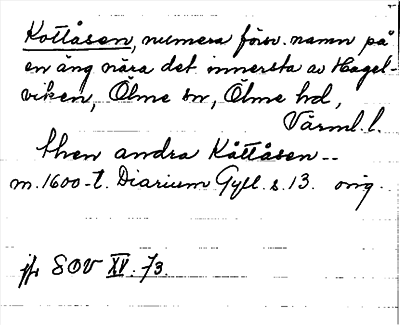 Kottåsen, numera försv. namn på
en äng nära det innersta av Hagel-
viken, Ölme sn, Ölme hd,
Värml. l.
then andra Kåttåsen --
m. 1600-t. Diarium Gyll. s. 13. orig.
jfr SOV XV. 73